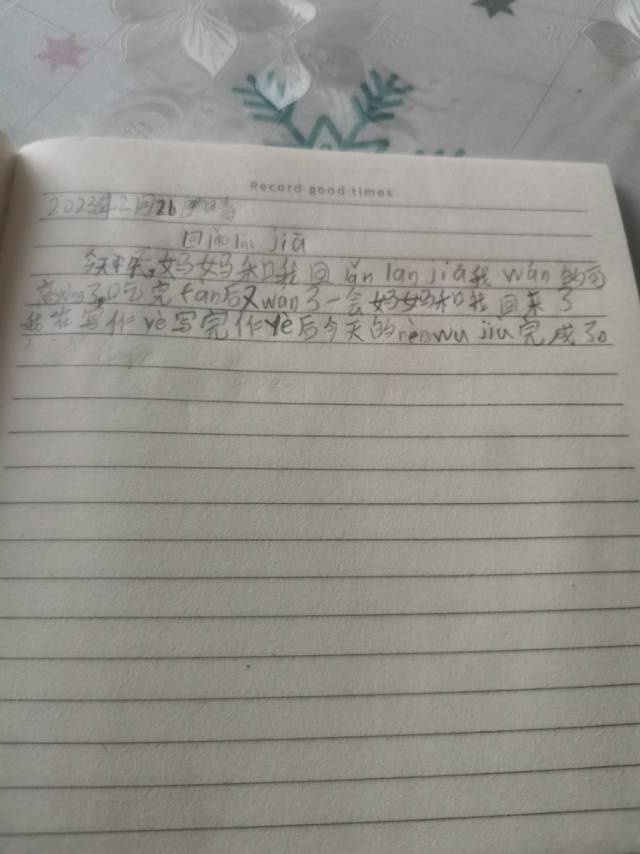 Record good times
2023年2月26
回 lao lao jiā
今天中午,妈妈和我回 lan jiā 我 wán 的可
高xing了。吃完 fàn后又wan了一会妈妈和我回来了
我在写作 yè 写完作yè后今天的rènwu jiù完成了。